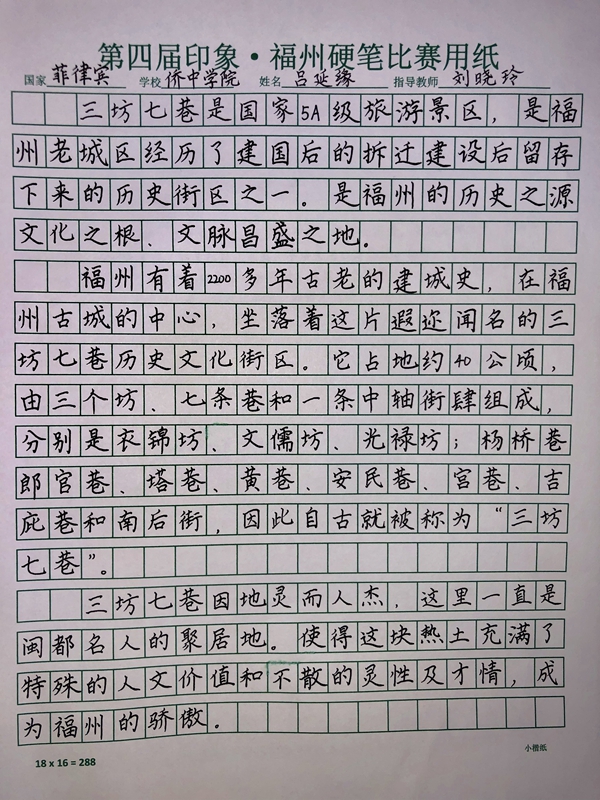 第四届印象·福州硬笔比赛用纸
国家 菲律宾 学校 侨中学院 姓名 吕延缘 指导教师 刘晓玲
三坊七巷是国家5A级旅游景区，是福
州老城区经历了建国后的拆迁建设后留存
下来的历史街区之一。是福州的历史之源
文化之根、文脉昌盛之地。
福州有着2200多年古老的建城史，在福
州古城的中心，坐落着这片遐迩闻名的三
坊七巷历史文化街区。它占地约40公顷，
由三个坊、七条巷和一条中轴街肆组成，
分别是衣锦坊、文儒坊、光禄坊；杨桥巷
郎官巷、塔巷、黄巷、安民巷、宫巷、吉
庇巷和南后街，因此自古就被称为“三坊
七巷”。
三坊七巷因地灵而人杰，这里一直是
闽都名人的聚居地。使得这块热土充满了
特殊的人文价值和不散的灵性及才情，成
为福州的骄傲。
小楷纸
18 x 16 = 288